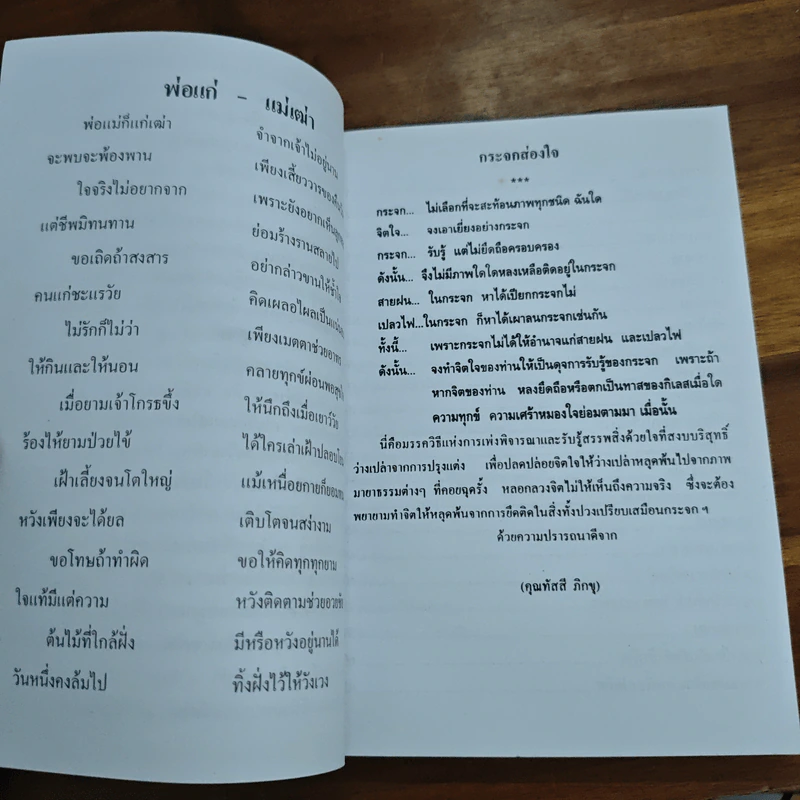 พ่อแก่ - แม่เฒ่า
พ่อแม่ก็แก่เฒ่า จำจากเจ้าไม่อยู่นาน
จะพบจะพ้องพาน เพียงเสี้ยววารของ
ใจจริงไม่อยากจาก เพราะยังอยากเห็น
แต่ชีพมิทนทาน ย่อมร้างรานสลายไป
ขอเถิดถ้าสงสาร อย่ากล่าวขานให้ช้ำใจ
คนแก่ชะแรวัย คิดเผลอไผลเป็น
ไม่รักก็ไม่ว่า เพียงเมตตาช่วยอาทร
ให้กินและให้นอน คลายทุกข์ผ่อนพอ
เมื่อยามเจ้าโกรธขึ้ง ให้นึกถึงเมื่อเยาว์วัย
ร้องไห้ยามป่วยไข้ ได้ใครเล่าเฝ้าปลอบ
เฝ้าเลี้ยงจนโตใหญ่ แม้เหนื่อยกายก็ยอม
หวังเพียงจะได้ยล เติบโตจนสง่างาม
ขอโทษถ้าทำผิด ขอให้คิดทุกทุกยาม
ใจแท้มีแต่ความ หวังติดตามช่วยอวย
ต้นไม้ที่ใกล้ฝั่ง มีหรือหวังอยู่นานได้
วันหนึ่งคงล้มไป ทิ้งฝั่งไว้ให้วังเวง
กระจกส่องใจ
***
กระจก... ไม่เลือกที่จะสะท้อนภาพทุกชนิด ฉันใด
จิตใจ... จงเอาเยี่ยงอย่างกระจก
กระจก... รับรู้ แต่ไม่ยึดถือครอบครอง
ดังนั้น... จึงไม่มีภาพใดใดหลงเหลือติดอยู่ในกระจก
สายฝน... ในกระจก หาได้เปียกกระจกไม่
เปลวไฟ...ในกระจก ก็หาได้เผาลนกระจกเช่นกัน
ทั้งนี้... เพราะกระจกไม่ได้ให้อำนาจแก่สายฝน และเปลวไฟ
ดังนั้น... จงทำจิตใจของท่านให้เป็นดุจการรับรู้ของกระจก เพราะถ้า
หากจิตของท่าน หลงยึดถือหรือตกเป็นทาสของกิเลสเมื่อใด
ความทุกข์ ความเศร้าหมองใจย่อมตามมา เมื่อนั้น
นี่คือมรรควิธีแห่งการเพ่งพิจารณาและรับรู้สรรพสิ่งด้วยใจที่สงบบริสุทธิ์
ว่างเปล่าจากการปรุงแต่ง เพื่อปลดปล่อยจิตใจให้ว่างเปล่าหลุดพ้นไปจากภาพ
มายาธรรมต่างๆ ที่คอยฉุดรั้ง หลอกลวงจิตไม่ให้เห็นถึงความจริง ซึ่งจะต้อง
พยายามทำจิตให้หลุดพ้นจากการยึดติดในสิ่งทั้งปวงเปรียบเสมือนกระจก ฯ
ด้วยความปรารถนาดีจาก
(คุณทัสสี ภิกขุ)